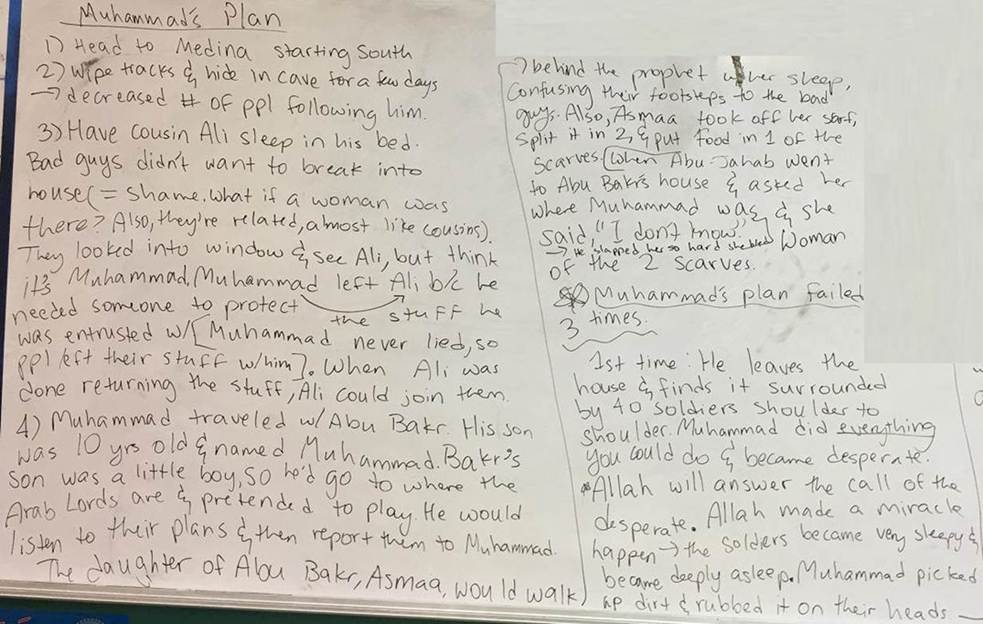 Muhammad's Plan
1) Head to Medina starting South
2) Wipe tracks & hide in cave for a few days
→ decreased # of ppl following him.
3) Have cousin Ali sleep in his bed.
Bad guys didn't want to break into
house (= shame. What if a woman was
there? Also, they're related, almost like cousins).
They looked into window & see Ali, but think
it's Muhammad. Muhammad left Ali b/c he
needed someone to protect the stuff he
was entrusted w/ [Muhammad never lied, so
ppl left their stuff w/him]. When Ali was
done returning the stuff, Ali could join them.
4) Muhammad traveled w/ Abu Bakr. His son
was 10 yrs old & named Muhammad. Bakr's
son was a little boy, so he'd go to where the
Arab Lords are & pretended to play. He would
listen to their plans & then report them to Muhammad.
The daughter of Abu Bakr, Asmaa, would walk
→ behind the prophet w/ her sheep,
confusing their footsteps to the bad
guys. Also, Asmaa took off her scarf,
split it in 2, & put food in 1 of the
scarves. When Abu Jahab went
to Abu Bakr's house & asked her
where Muhammad was, & she
said "I don't know."
→ He slapped her so hard she bled Woman
of the 2 scarves.
Muhammad's plan failed
3 times.
1st time: He leaves the
house & finds it surrounded
by 40 soldiers shoulder to
shoulder. Muhammad did everything
you could do & became desperate.
*Allah will answer the call of the
desperate. Allah made a miracle
happen → the soldiers became very sleepy &
became deeply asleep. Muhammad picked
up dirt & rubbed it on their heads —